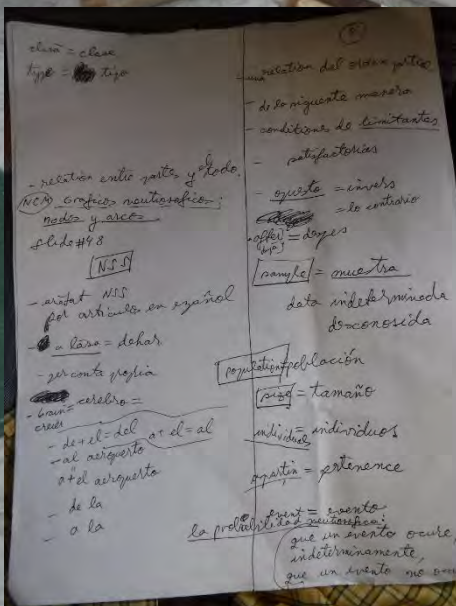 clasă = clase
type = tipo
- relation entre partes y el todo
NCM Graficos neutrosoficos:
nodos y arcos
slide #48
NSS
- arătat NSS
por articulos en español
- a lăsa = dehar
- per conta propia
- brain = cerebro =
creier
- de + el = del
a + el = al
- al aeropuerto
a + el aeropuerto
- de la
- a la
relation del orden partial
- de la siguente manera
- conditiones de limitantes
- satisfactorias
- opuesto = invers
= lo contrario
sample = muestra
data indeterminada
desconosida
population = población
size = tamaño
individuals = individuos
apartin = pertenence
event = evento
la probabilidad neutrosofica:
que un evento ocure,
indeterminamente,
que un evento no